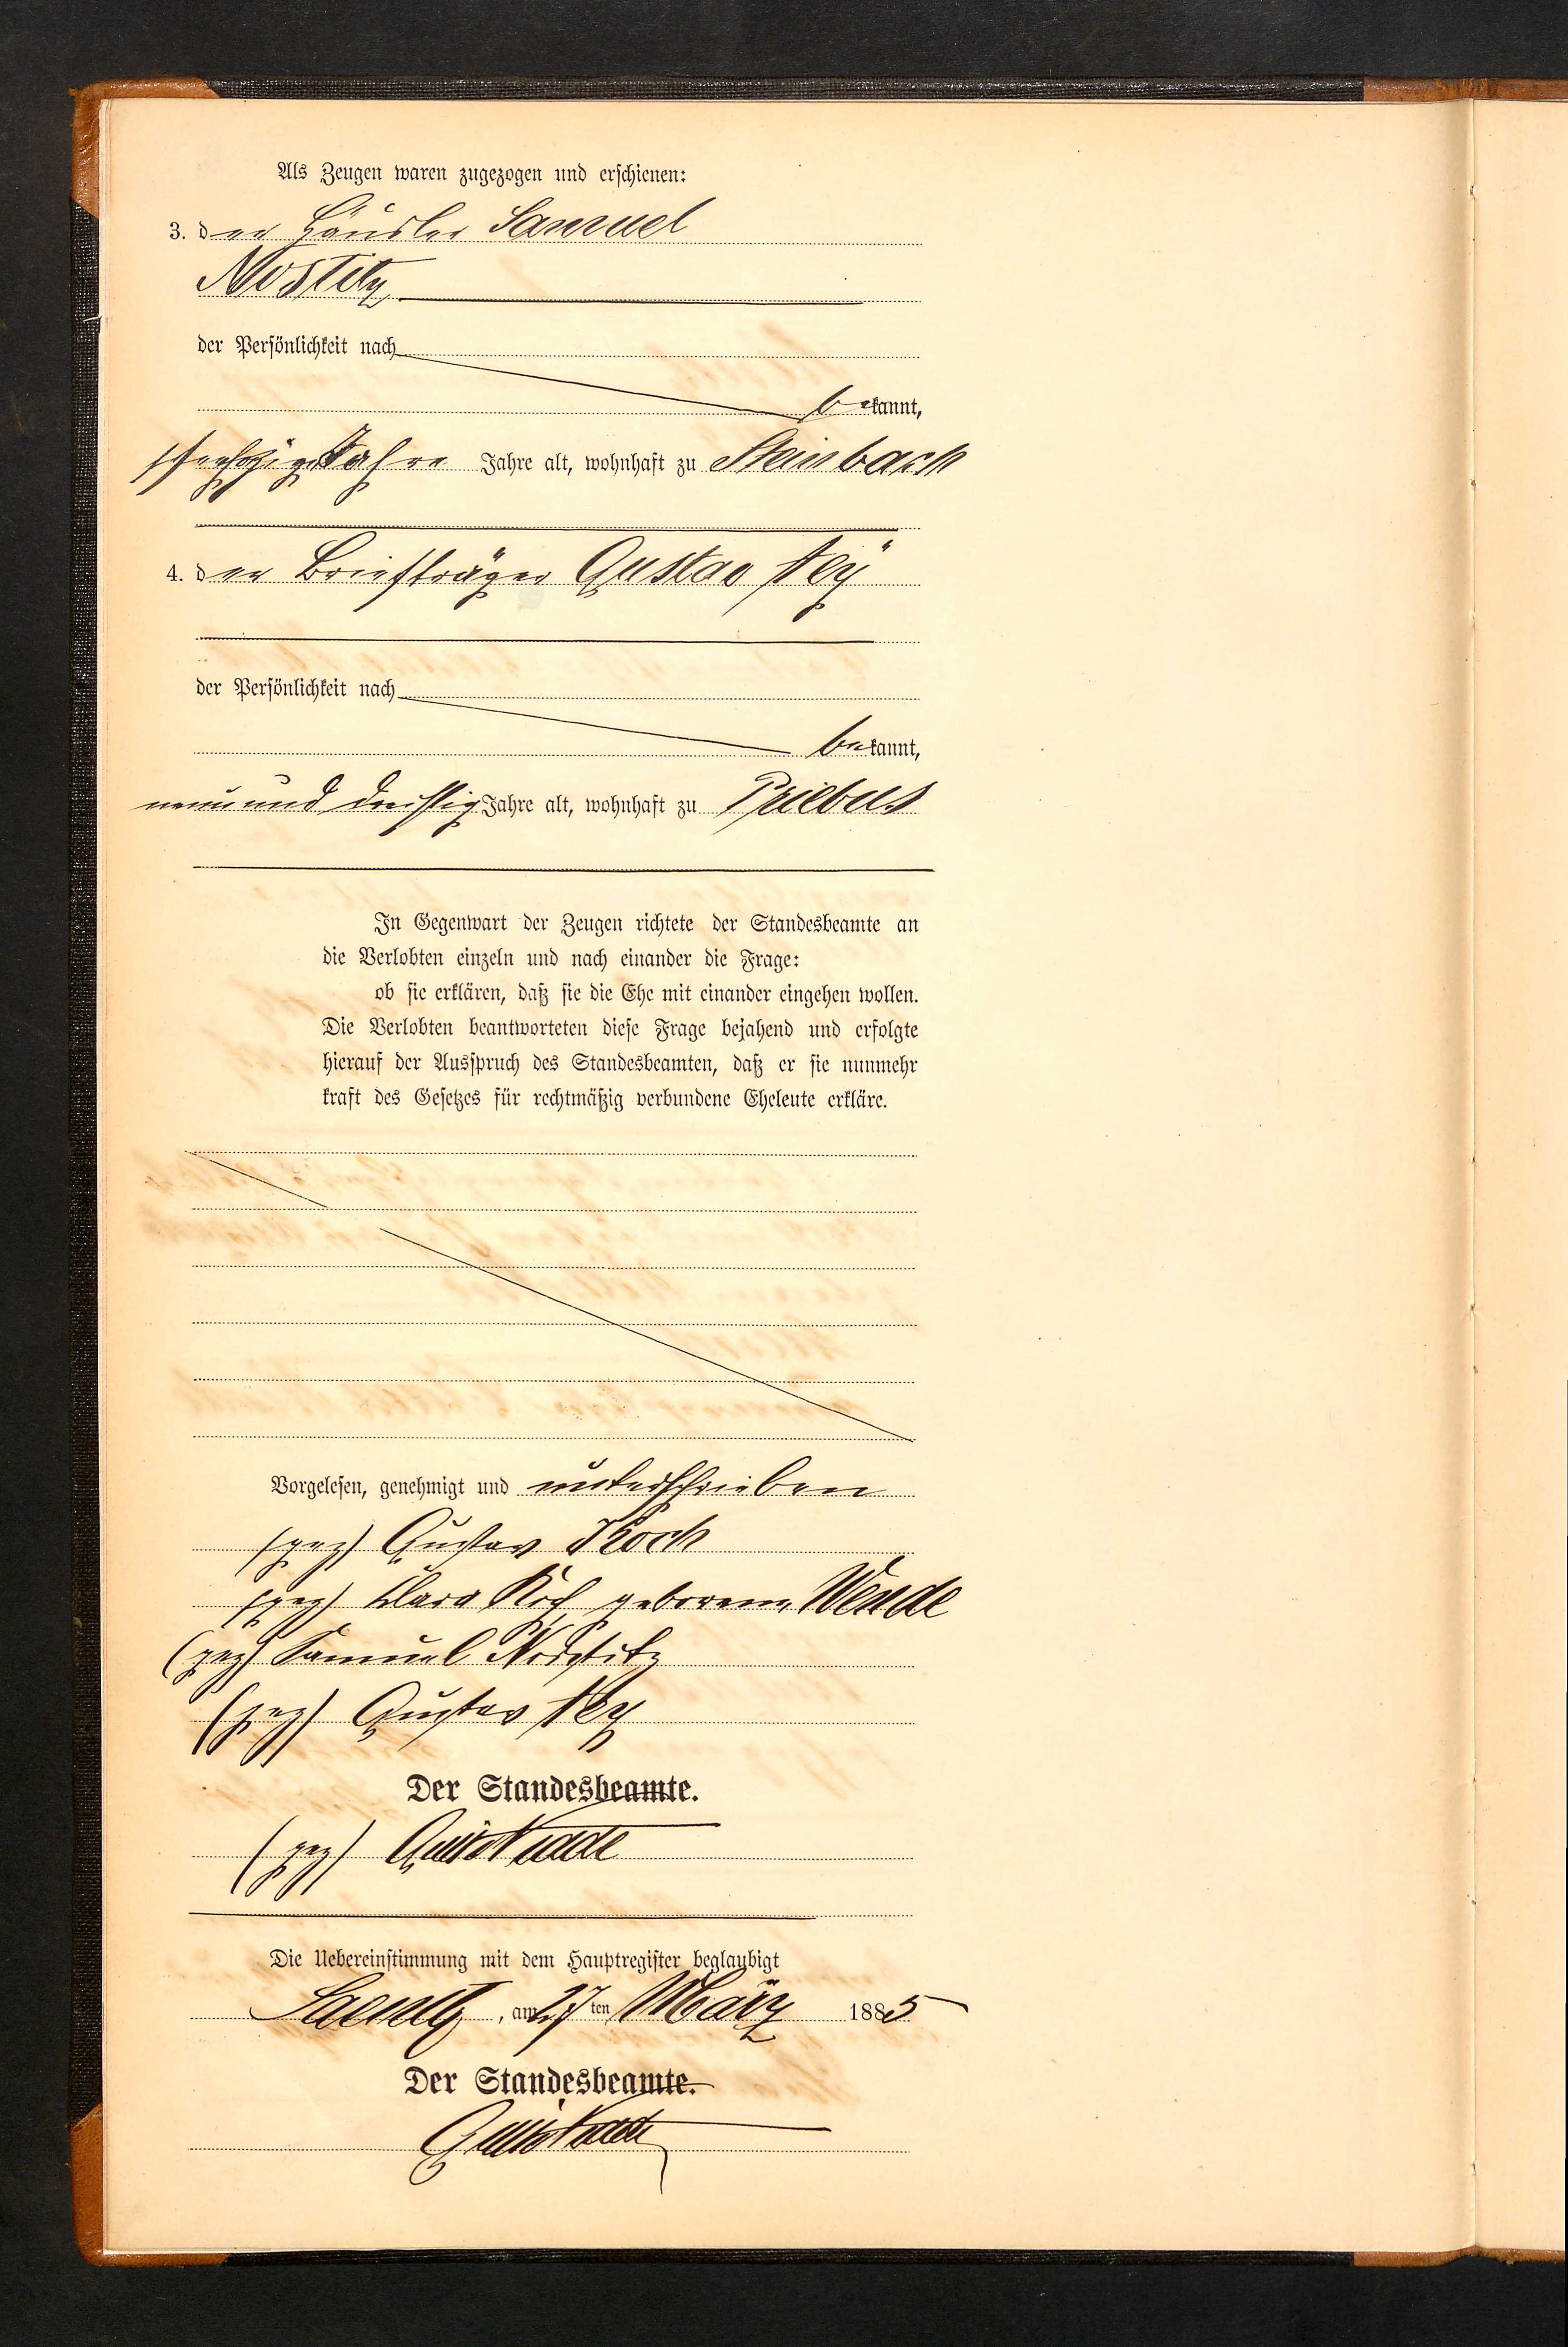 Als Zeugen waren zugezogen und erschienen:
3. der Häusler Samuel
Nostitz
der Persönlichkeit nach
bekannt,
sechzig Jahre Jahre alt, wohnhaft zu Steinbach
4. der Briefträger Gustav Ney
der Persönlichkeit nach
bekannt,
neun und dreißig Jahre alt, wohnhaft zu Priebus
In Gegenwart der Zeugen richtete der Standesbeamte an
die Verlobten einzeln und nach einander die Frage:
ob sie erklären, daß sie die Ehe mit einander eingehen wollen.
Die Verlobten beantworteten diese Frage bejahend und erfolgte
hierauf der Ausspruch des Standesbeamten, daß er sie nunmehr
kraft des Gesetzes für rechtmäßig verbundene Eheleute erkläre.
Vorgelesen, genehmigt und unterschrieben
(gez) Gustav Koch
(gez) Clara Koch geborene Wende
(gez) Samuel Nostitz
(gez) Gustav Ney
Der Standesbeamte.
(gez)
Die Uebereinstimmung mit dem Hauptregister beglaubigt
Saentz, am 27ten März 1885
Der Standesbeamte.